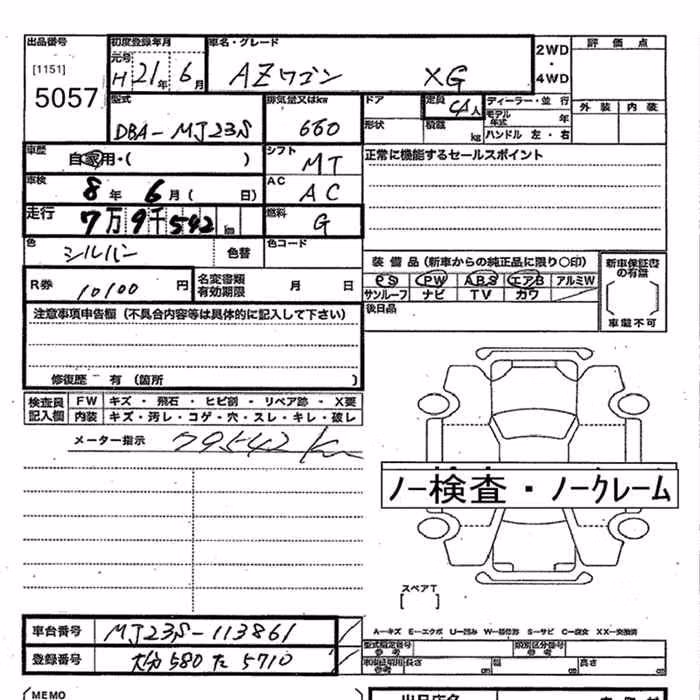 出品番号 初度登録年月 車名・グレード 評価点
[1151] 元号 H 21年 6月 AZワゴン XG 2WD・4WD
5057 外装 内装
型式 排気量又はkw ドア 定員 4人 ディーラー・並行
DBA-MJ23S 660 形状 積載 kg モデル年式 年
ハンドル 左・右
車歴 自家用・( ) シフト MT 正常に機能するセールスポイント
車検 8年 6月( 日) AC AC
走行 7万9千542km 燃料 G
色 シルバー 色替 色コード
装備品(新車からの純正品に限り○印) 新車保証書の有無
R券 10100円 名変書類有効期限 月 日 PS PW ABS エアB アルミW
サンルーフ ナビ TV カワ
後日品 車載不可
注意事項申告欄(不具合内容等は具体的に記入して下さい)
修復歴 有(箇所 )
検査員記入欄 FW キズ・飛石・ヒビ割・リペア跡・X要
内装 キズ・汚レ・コゲ・穴・スレ・キレ・破レ
メーター指示 79542km
ノー検査・ノークレーム
スペアT
[ ]
車台番号 MJ23S-113861 A-キズ E-エクボ U-凹み W-補修跡 S-サビ C-腐食 XX-交換済
型式指定番号 参考 類別区分番号 参考
登録番号 大分580た5710 車検証明用 参考 長さ cm 幅 cm 高さ cm
MEMO 出品店名